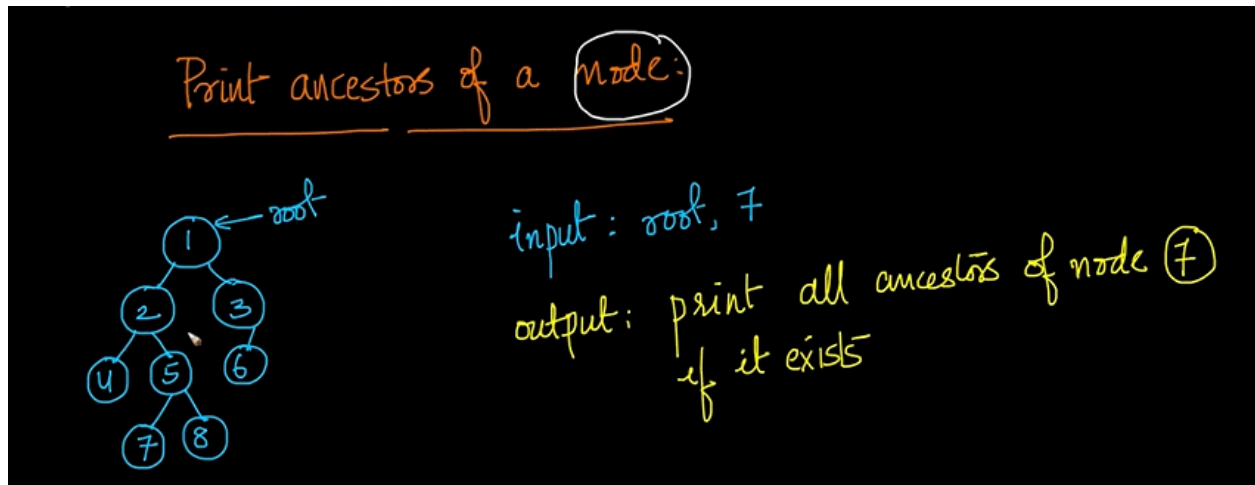 Print ancestors of a node:
root
1
input: root, 7
2 3
output: print all ancestors of node 7
if it exists
4 5 6
7 8